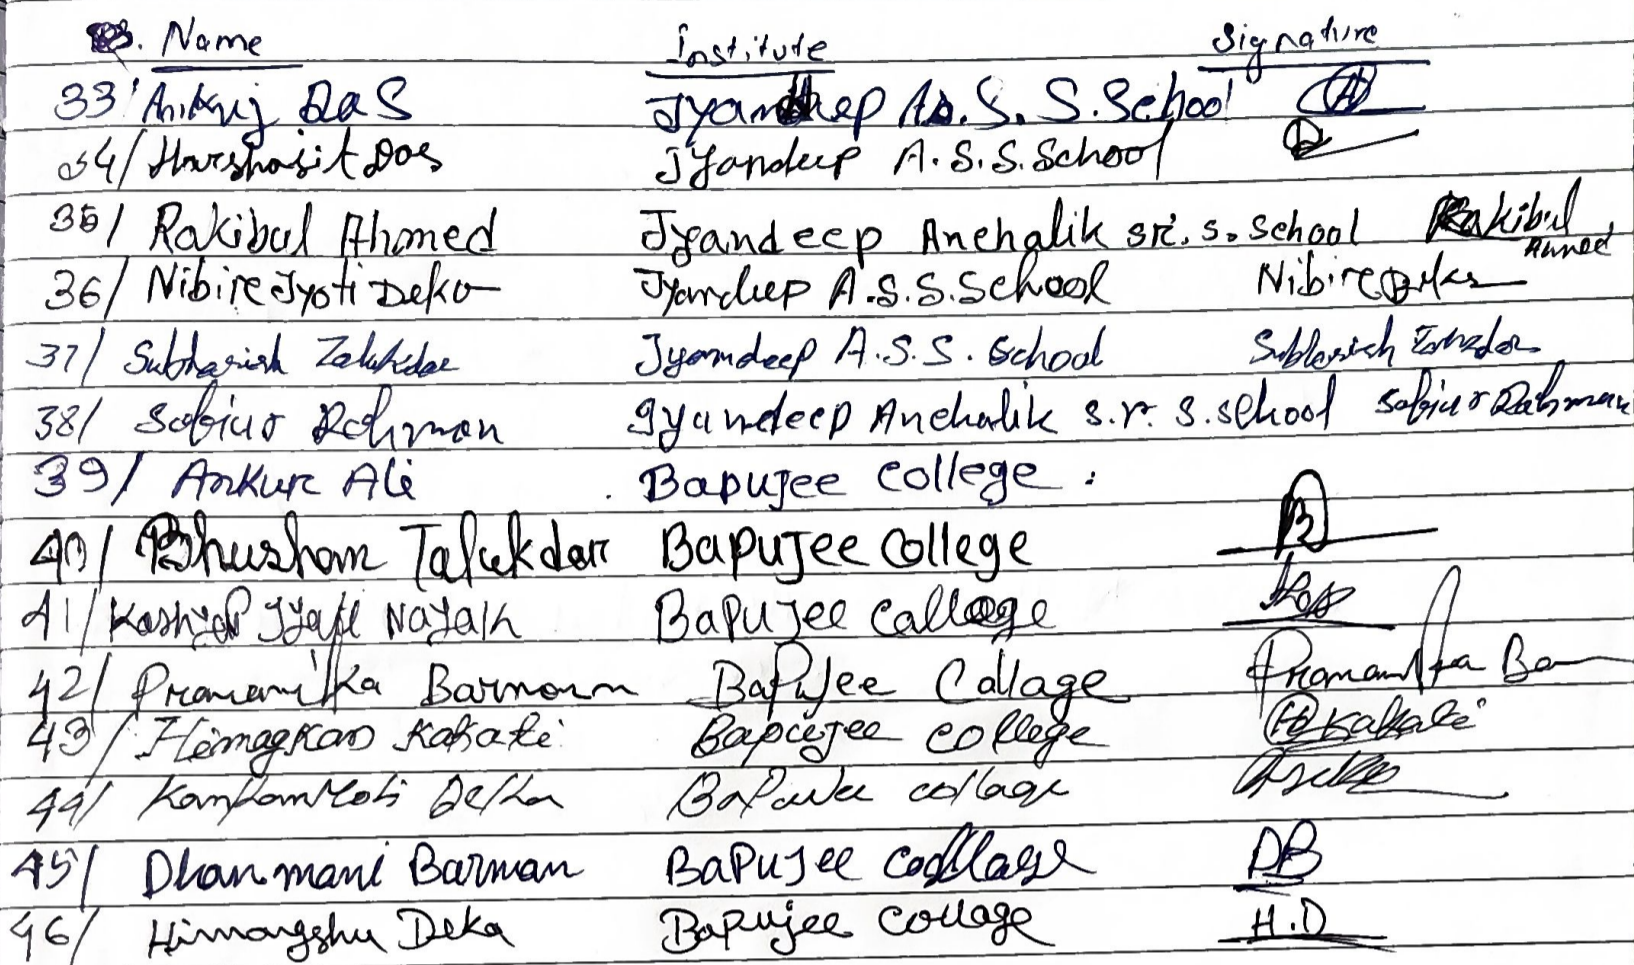 Name Institute Signature
33/ Das Jyandeep A. S. S. School
34/ Harshajit Das Jyandeep A.S.S. School
35/ Rakibul Ahmed Jyandeep Anchalik sr. s. School Rakibul Ahmed
36/ Nibire Jyoti Deka Jyandeep A.S.S. School Nibire Deka
37/ Subhasish Talukdar Jyandeep A.S.S. School Subhasish Talukdar
38/ Sabiur Rahman Gyandeep Anchalik s.r. S. school Sabiur Rahman
39/ Ankur Ali Bapujee College :
40/ Bhushan Talukdar Bapujee College B
41/ Kashyap Jyoti Nayak Bapujee Callege
42/ Pramanika Barman Bapujee Callage Pramanika
43/ Kakati Bapujee College H Kakati
44/ Deka Bapujee collage
45/ Dhanmani Barman Bapujee Collage DB
46/ Himangshu Deka Bapujee Collage H.D